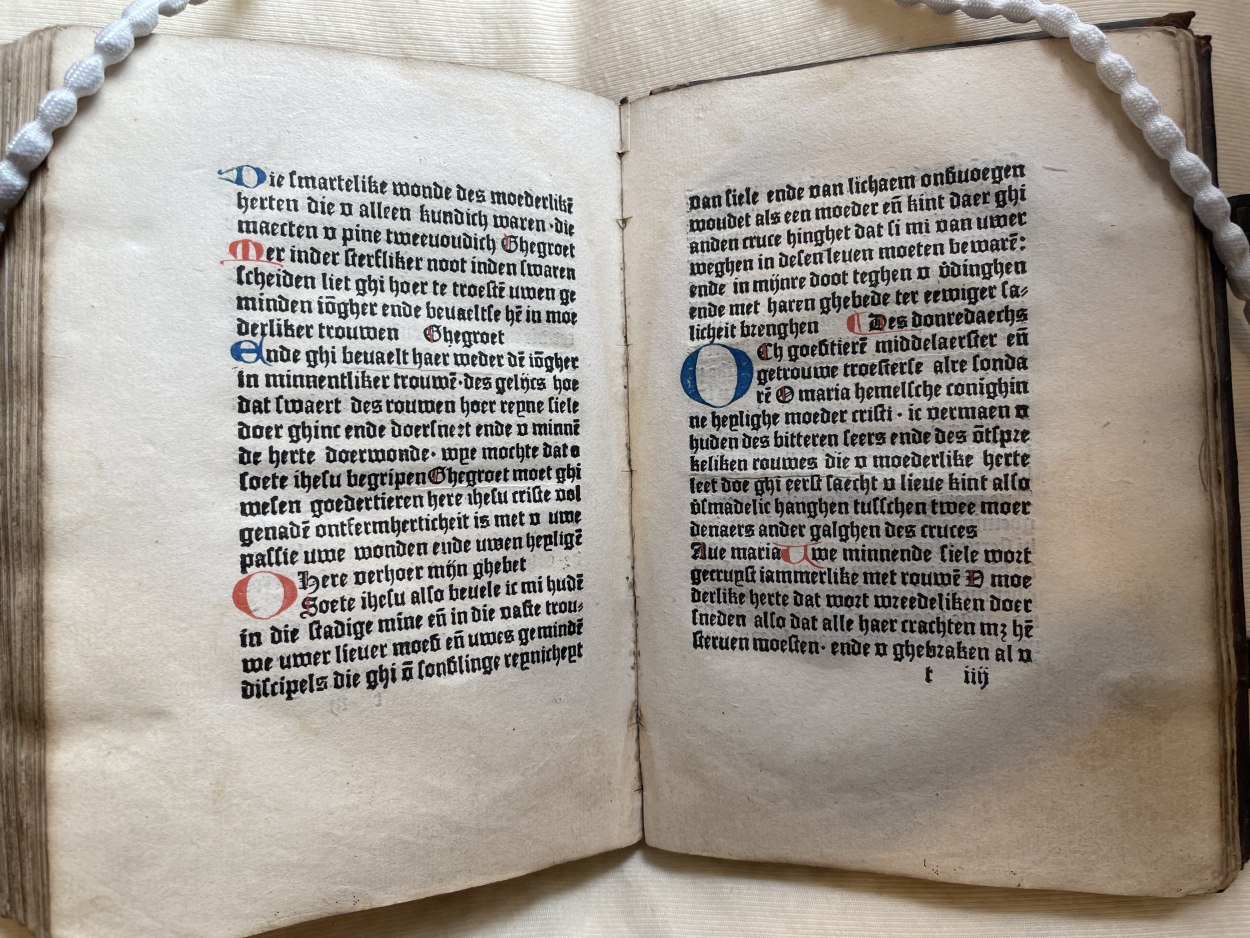 Die smartelike wonde des moederlikē
herten die v alleen kundich waren · die
maecten v pine tweevoudich Ghegroet
Mer inder sterfliker noot inden swaren
scheiden liet ghi hoer te troestē uwen ge
minden iōgher ende bevaeltse hē in moe
derliker trouwen Ghegroet
Ende ghi bevaelt haer weder dē iōgher
in minnentliker trouwē · des gelijcs hoe
dat swaert des rouwen hoer reyne siele
doer ghinc ende doersneet ende v minnē
de herte doerwonde · wye mochte dat o
soete ihesu begripen Ghegroet moet ghi
wesen goedertieren here ihesu criste vol
genadē ontfermherticheit is met v uwe
passie uwe wonden ende uwen heyligē
O Here verhoer mijn ghebet
Soete ihesu also bevele ic mi hudē
in die stadige mine eñ in die vaste trou⸗
we uwer liever moed eñ uwes gemindē
discipels die ghi ō sondlinge reynicheyt
van siele ende van lichaem ondvoegen
woudet als een moeder eñ kint daer ghi
anden cruce hinghet dat si mi van uwer
weghen in desen leven moeten bewarē:
ende in mijnre doot teghen v v̄dinghen
ende met haren ghebede ter eewiger sa⸗
licheit brenghen Des donredaechs
Och goedtierē middelaerster eñ
getrouwe troesterse alre sonda
rē O maria hemelsche conighin
ne heylighe moeder cristi · ic vermaen v
huden des bitteren seers ende des ōtspre
keliken rouwes die v moederlike herte
leet doe ghi eerst saecht v lieve kint also
v̄smadelic hanghen tusschen twee moer
denaers ander galghen des cruces
Ave maria Uwe minnende siele wort
gecruyst iammerlike met rouwē U moe
derlike herte dat wort wreedeliken doer
sneden also dat alle haer crachten mz hē
sterven moesten · ende v ghebraken al v
t iiij